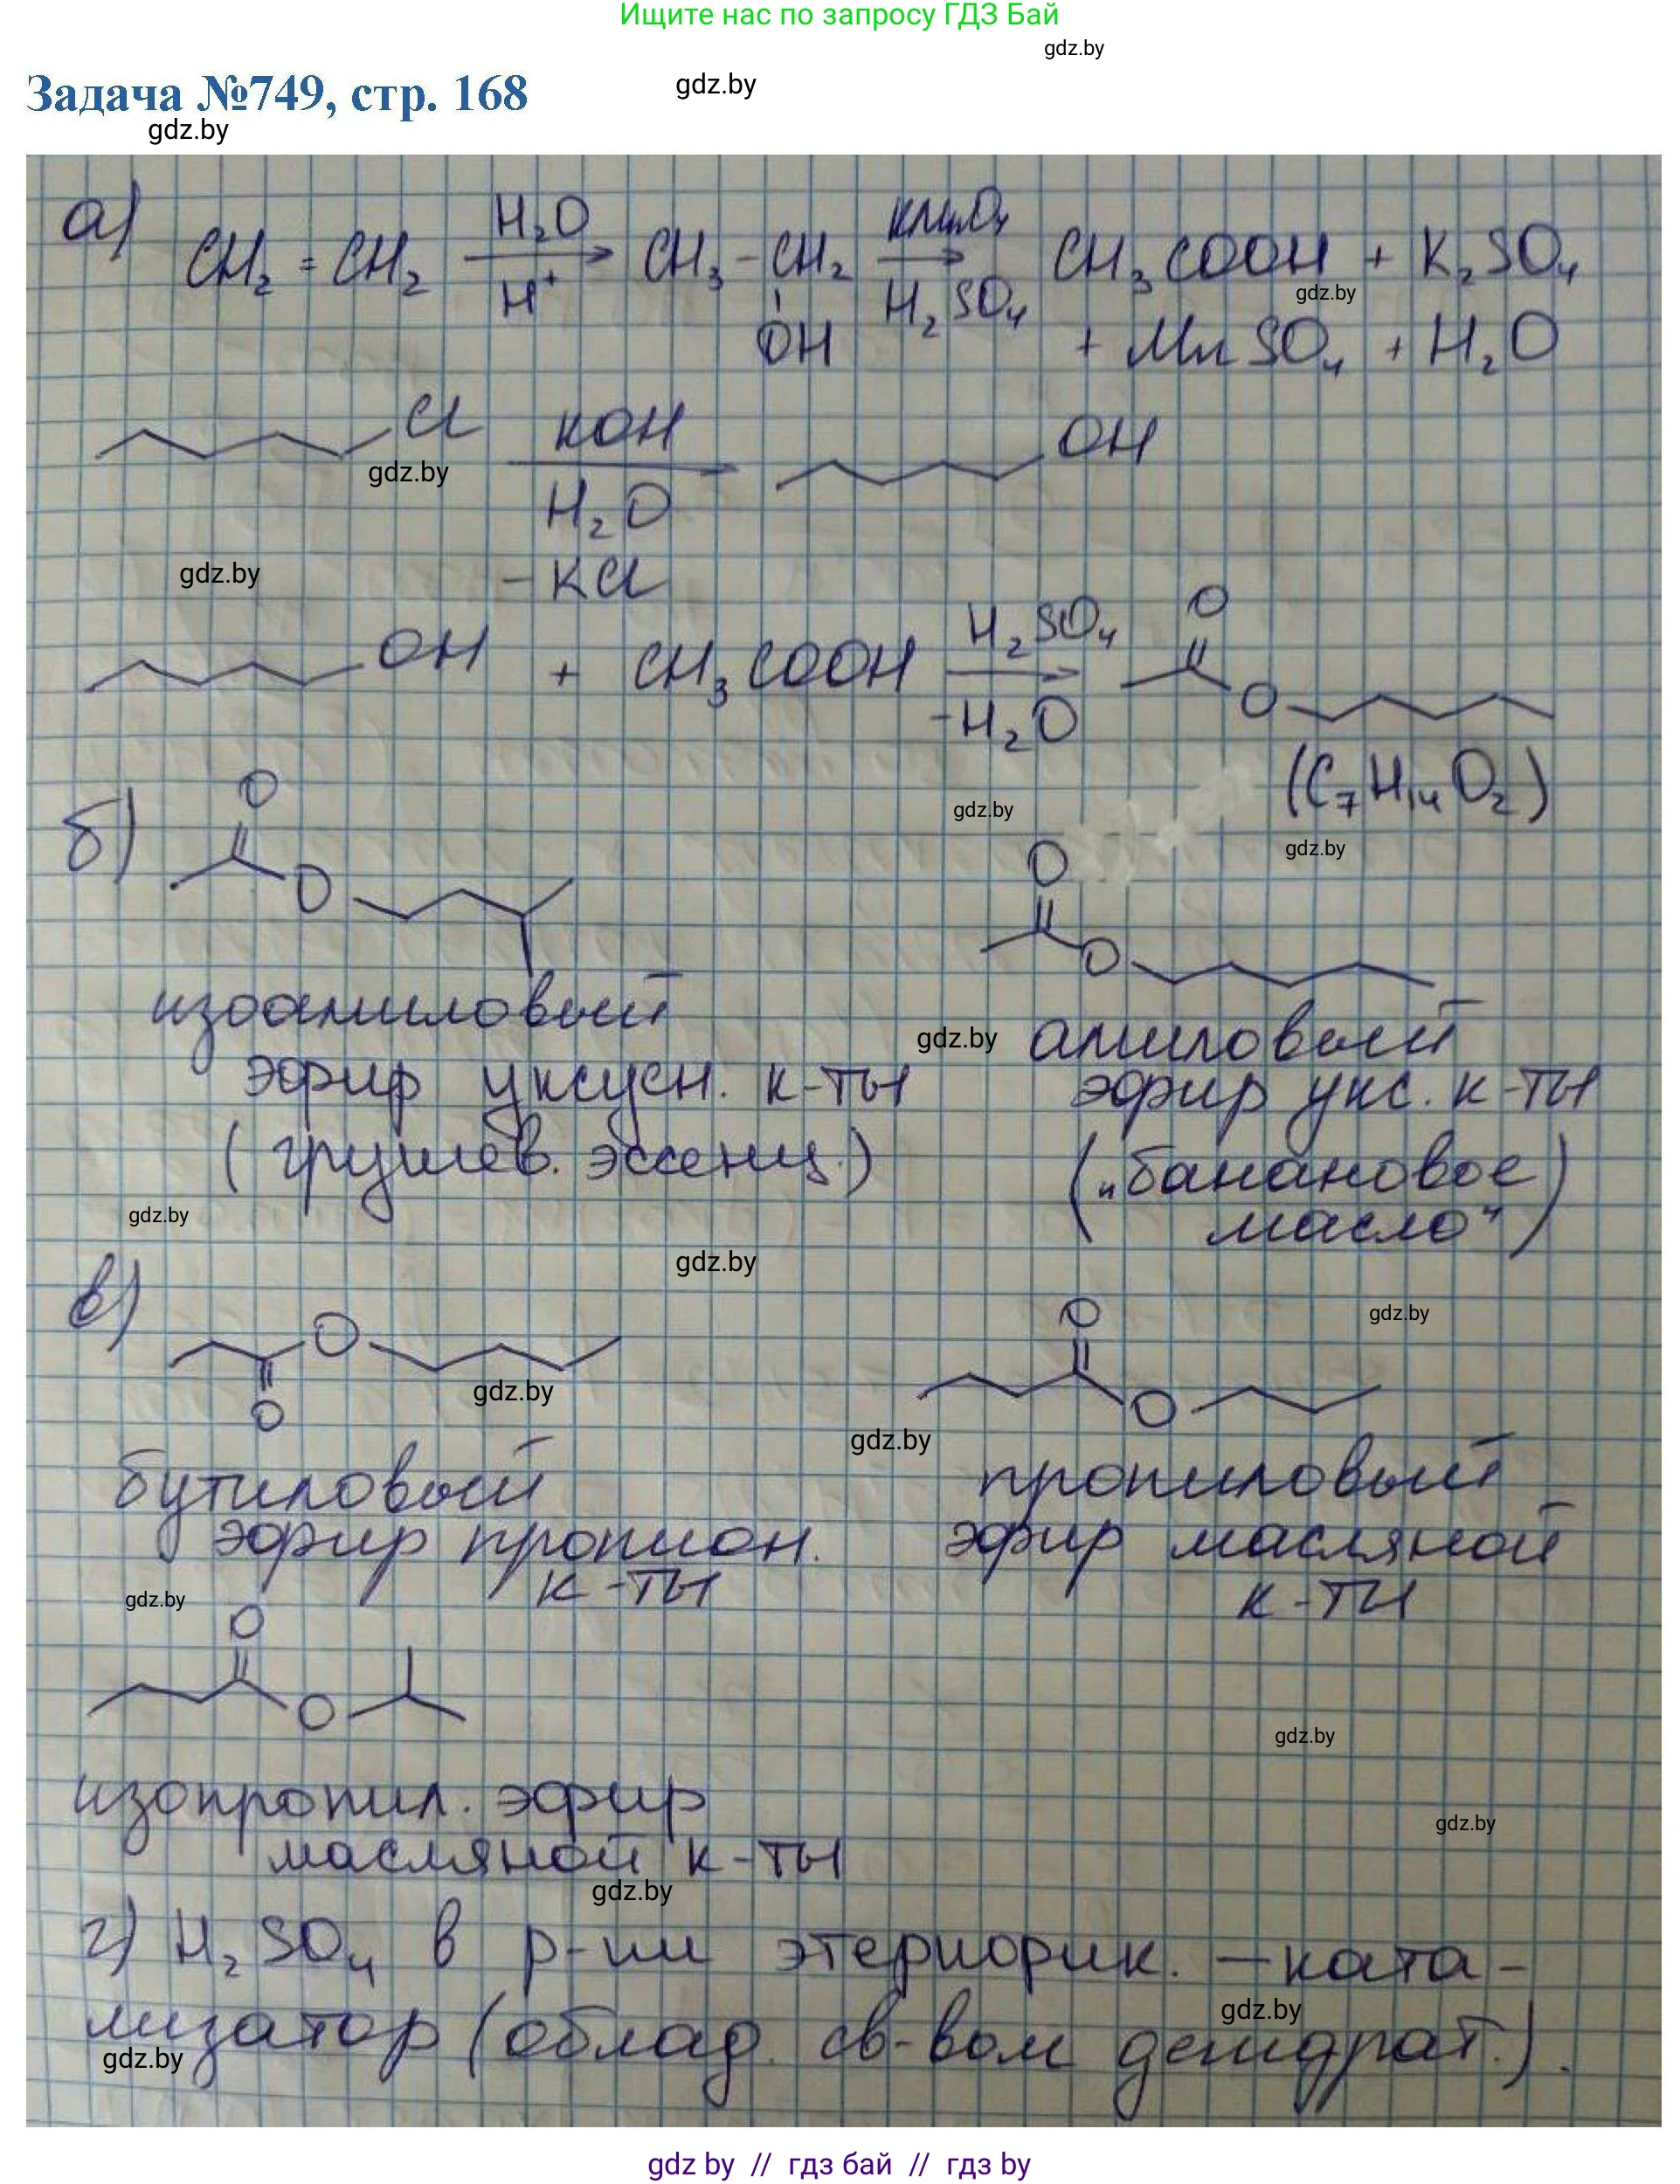 Ищите нас по запросу ГДЗ Бай
gdz.by
Задача №749, стр. 168
gdz.by
gdz.by
а) CH₂=CH₂ H₂O H⁺ CH₃-CH₂ OH KMnO₄ H₂SO₄ CH₃COOH + K₂SO₄
gdz.by
+ MnSO₄ + H₂O
Cl KOH H₂O -KCl OH
gdz.by
gdz.by
OH + CH₃COOH H₂SO₄ -H₂O O O
(C₇H₁₄O₂)
gdz.by
gdz.by
б) O O
O O
изоамиловый
эфир уксусн. к-ты
(грушев. эссенц.)
gdz.by
амиловый
эфир укс. к-ты
("банановое
масло")
gdz.by
gdz.by
в) O O
gdz.by
O O
gdz.by
gdz.by
бутиловый
эфир пропион.
к-ты
пропиловый
эфир масляной
к-ты
gdz.by
O O
gdz.by
изопропил. эфир
масляной к-ты
gdz.by
gdz.by
г) H₂SO₄ в р-ии этерифик. – ката-
лизатор (облад. св-вом дегидрат.).
gdz.by
gdz.by
gdz by // гдз бай // gdz by